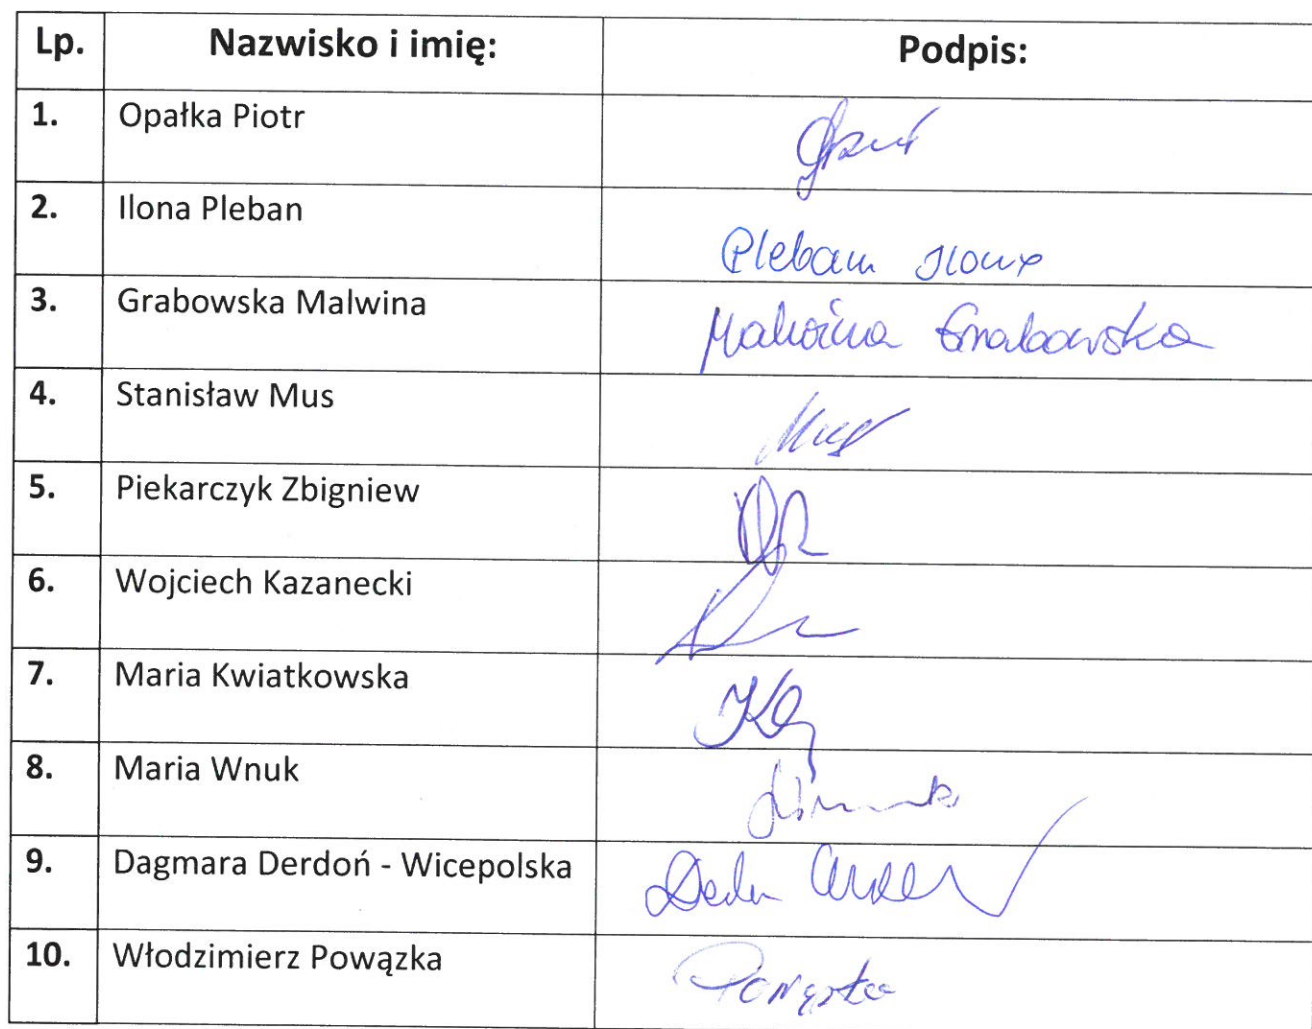 Lp. Nazwisko i imię: Podpis:
1. Opałka Piotr
2. Ilona Pleban Pleban Ilona
3. Grabowska Malwina Malwina Grabowska
4. Stanisław Mus Mus
5. Piekarczyk Zbigniew
6. Wojciech Kazanecki
7. Maria Kwiatkowska
8. Maria Wnuk
9. Dagmara Derdoń - Wicepolska
10. Włodzimierz Powązka Powązka